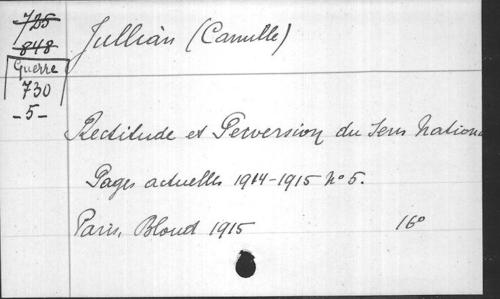 725
848
Guerre
730
-5-
Jullian (Camille)
Rectitude et Perversion du Sens Nationa
Pages actuelles 1914-1915 No 5.
Paris, Bloud 1915 16o